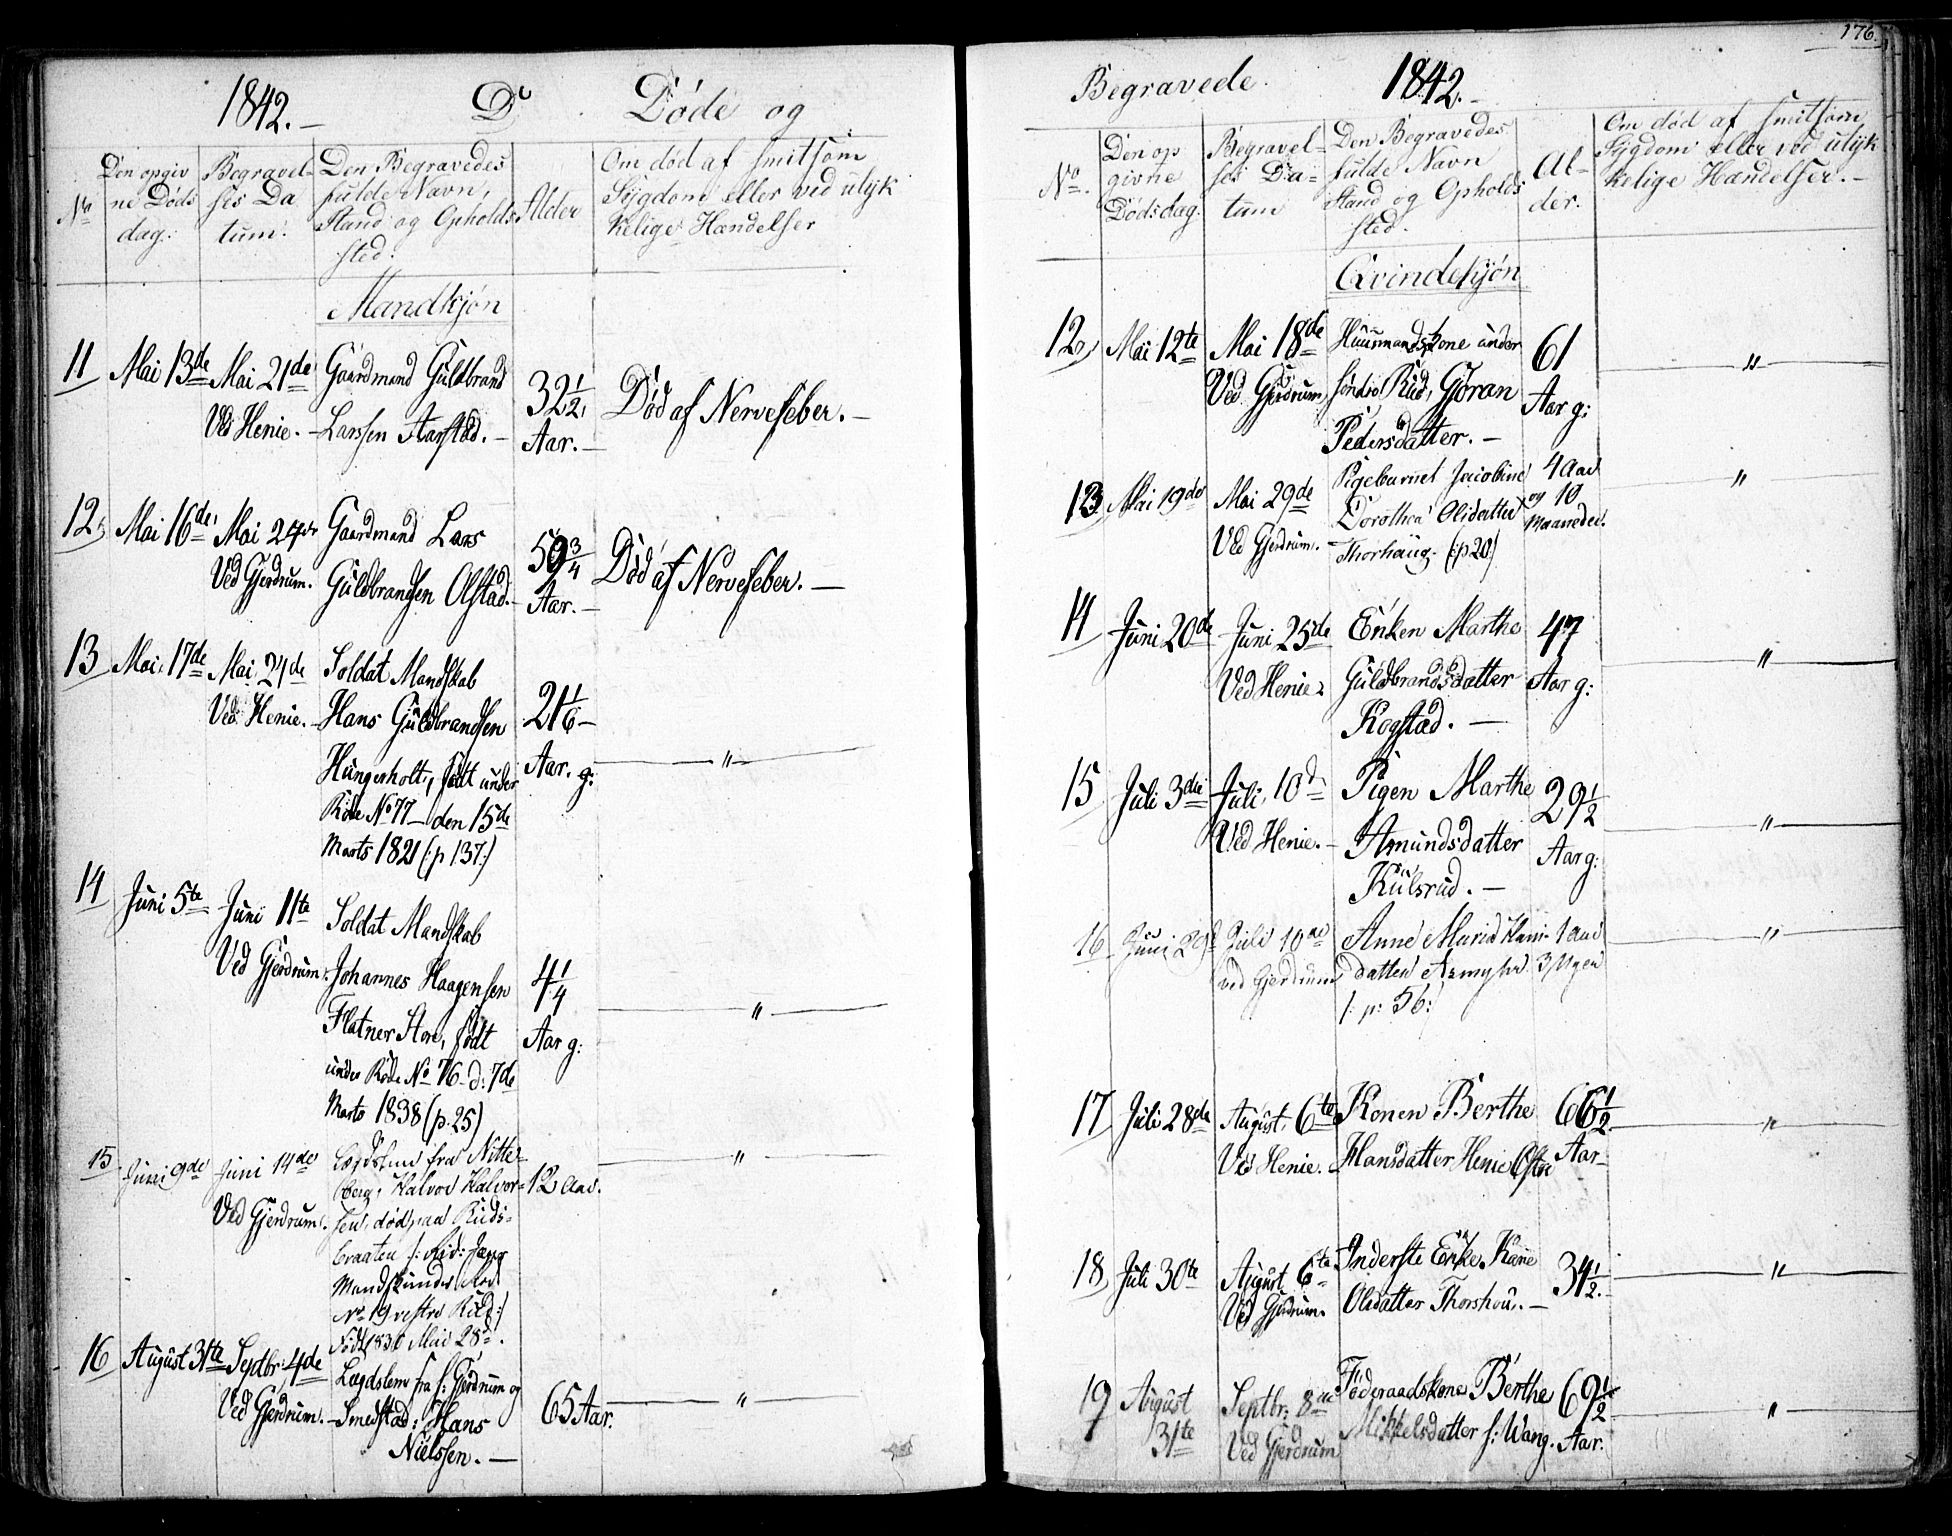 1842. Dº Døde og
No
Den opgivne Dødsdag.
Begravelses Datum.
Den Begravedes fulde Navn, Stand og Opholdssted.
Alder
Om død af smitsom Sygdom eller ved ulykkelige Hændelser
Mandkjøn
11 Mai 13de Mai 21de Gaardmand Guldbrand 32 1/2
Ved Henie. Larssen Aarstad. Aar. Død af Nervefeber.
12 Mai 16de Mai 24de Gaardmand Lars 59 3/4
Ved Gjerdrum. Guldbrandsen Olstad. Aar. Død af Nervefeber.
13 Mai 17de Mai 24de Soldat Mandskab
Ved Henie. Hans Guldbrandsen 21 1/6
Hungerholt, født under Aar. g: "
Rode No 77 den 15de
Marts 1821 (:p 137:)
14 Juni 5te Juni 11te Soldat Mandskab
Ved Gjerdrum. Johannes Haagensen 4 1/4
Flatner Store, født Aar g: "
under Rode No 76 d: 7de
Marts 1838 (p. 25)
15 Juni 9de Juni 14de Lægdslem fra Nitte-
berg, Halvor Halvor- 12 Aar. "
Ved Gjerdrum. sen, død paa Ruds-
braaten
No 19 vestre Rud:)
Født 1830 Mai 28de.
16 August 31te Septbr: 4de Lægdslem fra s: Gjerdrum og
Ved Gjerdrum. Smedstad: Hans 65 Aar. "
Nielssen.
176.
Begravede 1842.
No.
Den opgivne Dødsdag.
Begravelses Datum
Den Begravedes fulde Navn Stand og Opholdssted.
Alder.
Om død af smitsom Sygdom eller ved ulykkelige Hændelser.
Qvindekjøn
12 Mai 12te Mai 18de Huusmandskone under 61
Ved Gjerdrum, søndre Rud, Gjøran Aar g: "
Pedersdatter.
13 Mai 19de Mai 29de Pigebarnet Jacobine 4 Aar
Dorothea Olsdatter og 10 "
Ved Gjerdrum. Thorhaug. (:p 20:) Maaneder.
14 Juni 20de Juni 25de Enken Marthe 47
Ved Henie. Guldbrandsdatter Aar g: "
Kogstad.
15 Juli 3die Juli 10de Pigen Marthe 29 1/2
Ved Henie. Amundsdatter Aar g: "
Kulsrud.
16 Juni 29 Juli 10de Anne Marie Hans- 1 Aar
ved Gjerdrum datter 3 Uger "
/: p: 56:
17 Juli 28de August 6te Konen Berthe 66 1/2
Ved Henie. Hansdatter Henie Østre Aar "
18 Juli 30te August 6te Inderste Enke Karie 34 1/2.
Ved Gjerdrum. Olsdatter Thorshou. "
19 August Septbr: 8de Føderaadskone Berthe 69 1/2
31te Ved Gjerdrum Mikkelsdatter s: Wang. Aar. "